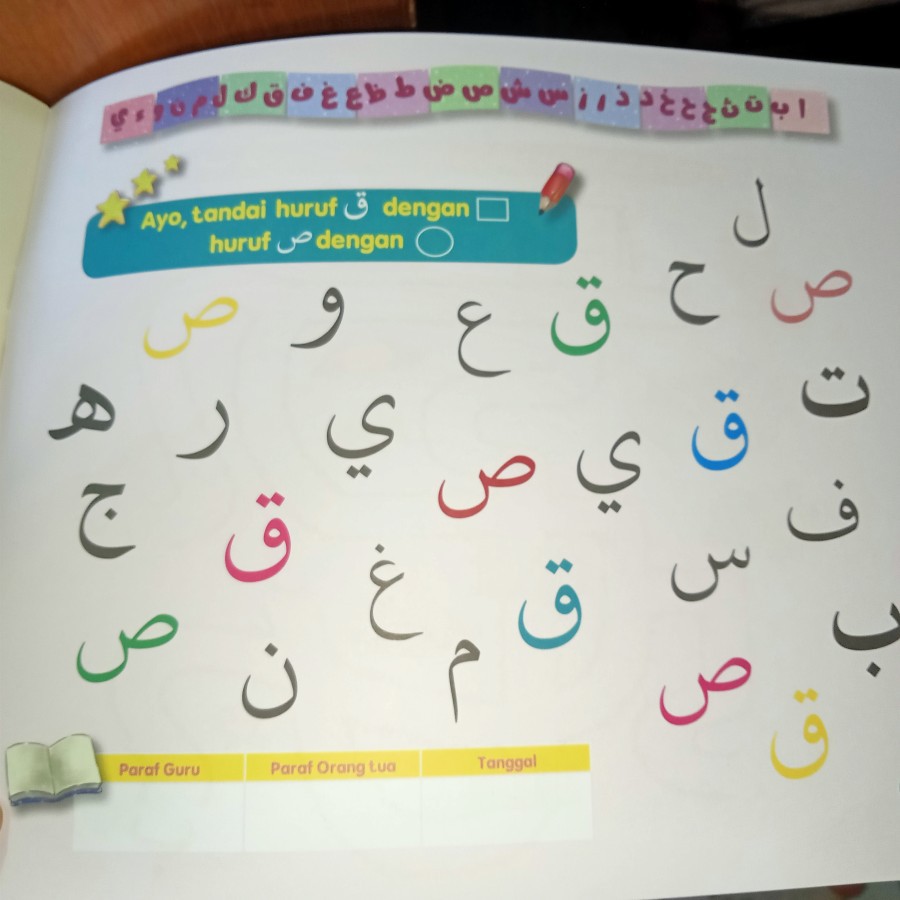 ا ب ت ث ج ح خ د ذ ر ز س ش ص ض ط ظ ع غ ف ق ك ل م ن و ء ي
Ayo, tandai huruf ق dengan
huruf ص dengan
ل
ص ح ق ع و ص
ت ق ي ص ي ر ه
ف س ق غ ق ج
ب ص م ن ص
ق
Paraf Guru Paraf Orang tua Tanggal